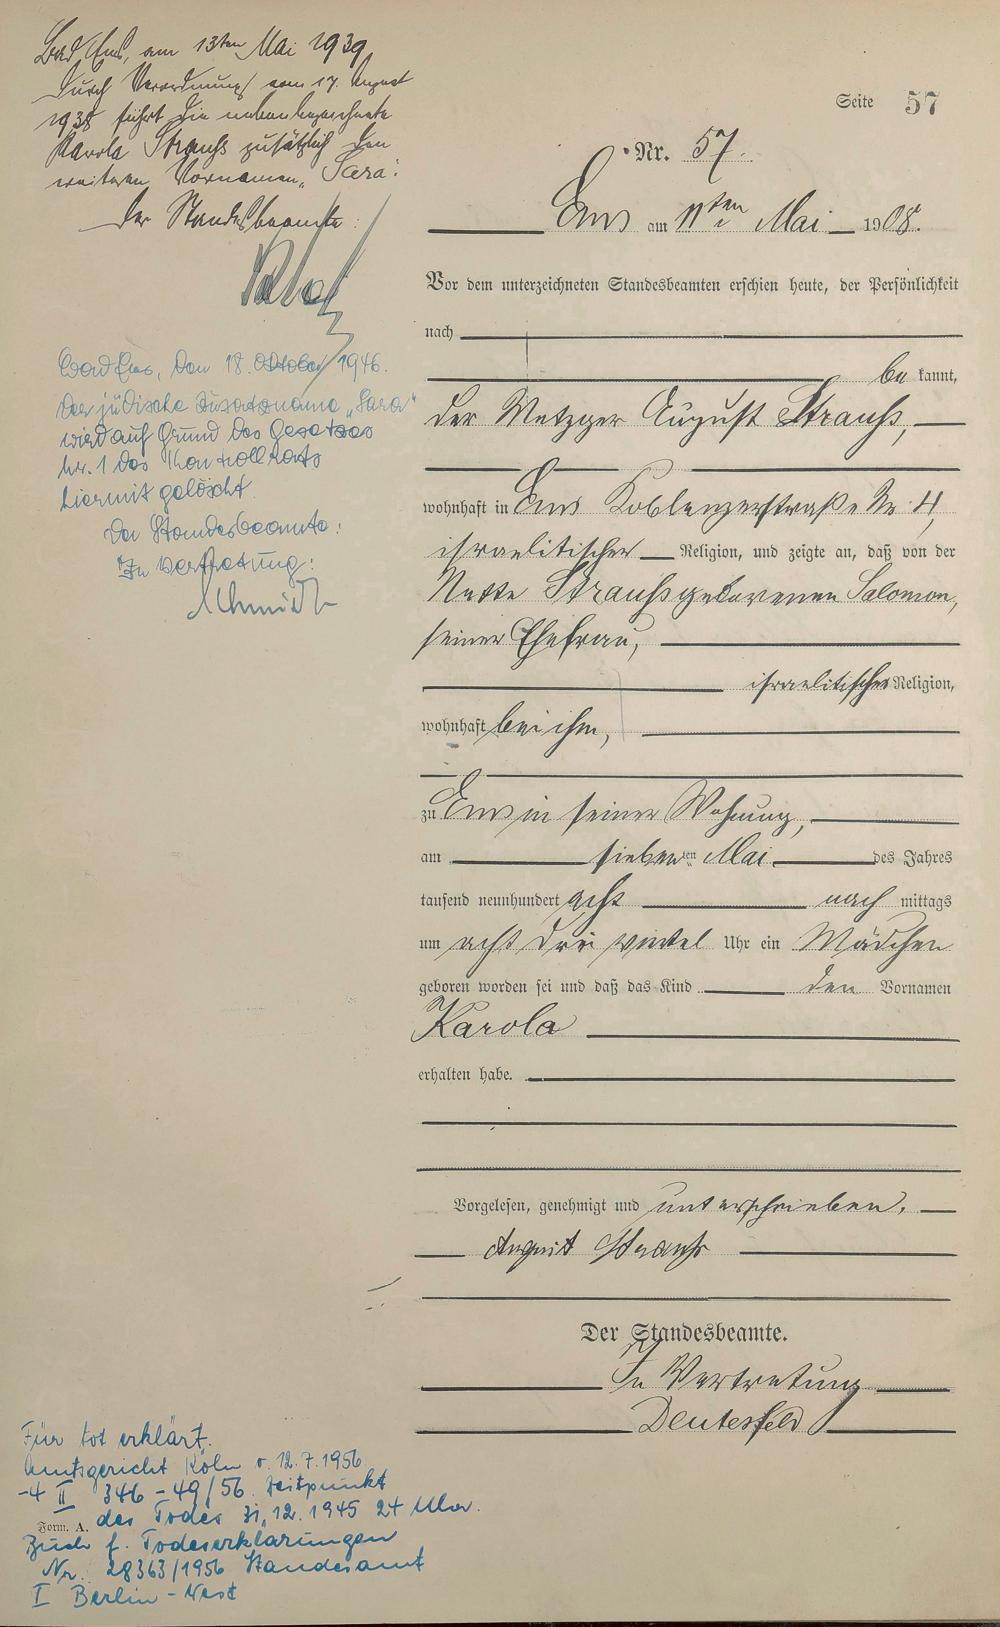 Bad Ems, am 13ten Mai 1939.
Durch Verordnung vom 17. August
1938 führt die nebenbezeichnete
Karola Strauß zusätzlich den
weiteren Vornamen „Sara".
Der Standesbeamte:
Bad Ems, den 18. Oktober 1946.
Der jüdische Zusatzname „Sara"
wird auf Grund des Gesetzes
Nr. 1 des Kontrollrats
hiermit gelöscht.
Der Standesbeamte:
In Vertretung:
Schmidt
Seite 57
Nr. 57.
Ems am 11ten Mai 1908.
Vor dem unterzeichneten Standesbeamten erschien heute, der Persönlichkeit
nach
be kannt,
der Metzger August Strauß,
wohnhaft in Ems Koblenzerstraße Nr. 4,
israelitischer Religion, und zeigte an, daß von der
Nette Strauß geborenen Salomon,
seiner Ehefrau,
israelitischer Religion,
wohnhaft bei ihm,
zu Ems in seiner Wohnung,
am sieben ten Mai des Jahres
tausend neunhundert acht nach mittags
um acht drei viertel Uhr ein Mädchen
geboren worden sei und daß das Kind den Vornamen
Karola
erhalten habe.
Vorgelesen, genehmigt und unterschrieben.
August Strauß
Der Standesbeamte.
In Vertretung
Deutesfeld
Für tot erklärt.
Amtsgericht Köln v. 12.7.1956
-4 II 346-49/56. Zeitpunkt
des Todes 31.12.1945 24 Uhr.
Form. A.
Buch f. Todeserklärungen
Nr. 28363/1956 Standesamt
I Berlin-West